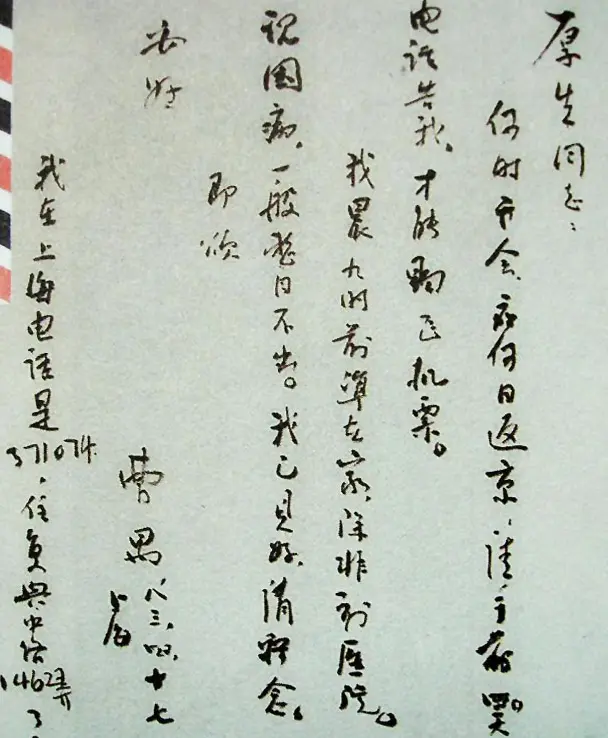 厚生同志：
何时开会，我何日返京，请予
电话告我，才能购飞机票。
我晨九时前准在家，除非到医院。
现因病，一般整日不出。我已见好，请释念。
即颂
安好
曹禺 八三、四、十七
上海
我在上海电话是371074，住复兴中路1462弄3